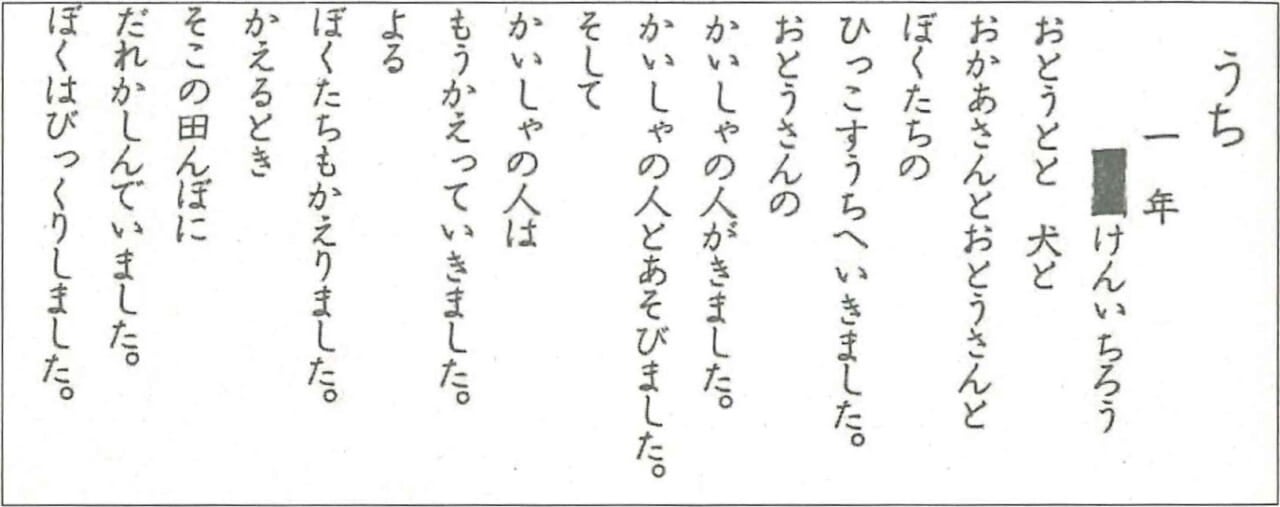 うち
一年
けんいちろう
おとうとと 犬と
おかあさんとおとうさんと
ぼくたちの
ひっこすうちへいきました。
おとうさんの
かいしゃの人がきました。
かいしゃの人とあそびました。
そして
かいしゃの人は
もうかえっていきました。
よる
ぼくたちもかえりました。
かえるとき
そこの田んぼに
だれかしんでいました。
ぼくはびっくりしました。